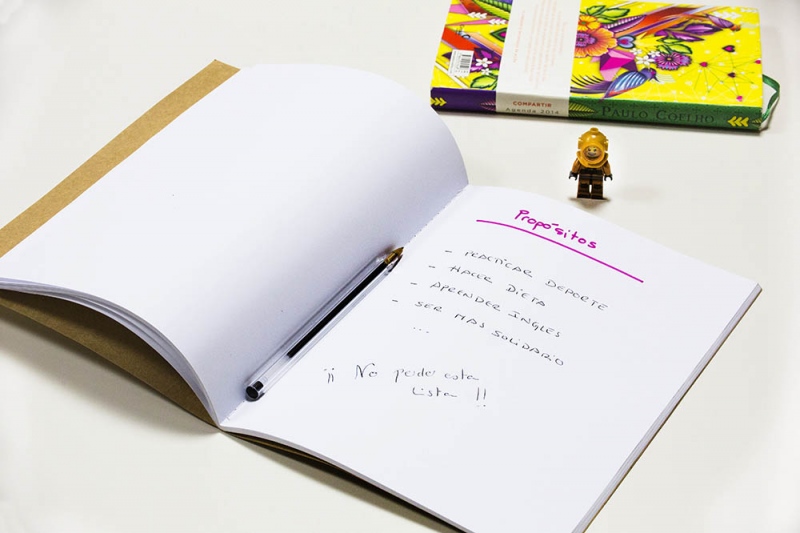 COMPARTIR
Agenda 2014
PAULO COELHO
Propósitos
- PRACTICAR DEPORTE
- HACER DIETA
- APRENDER INGLES
- SER MAS SOLIDARIO
...
¡¡ No perder esta
lista !!